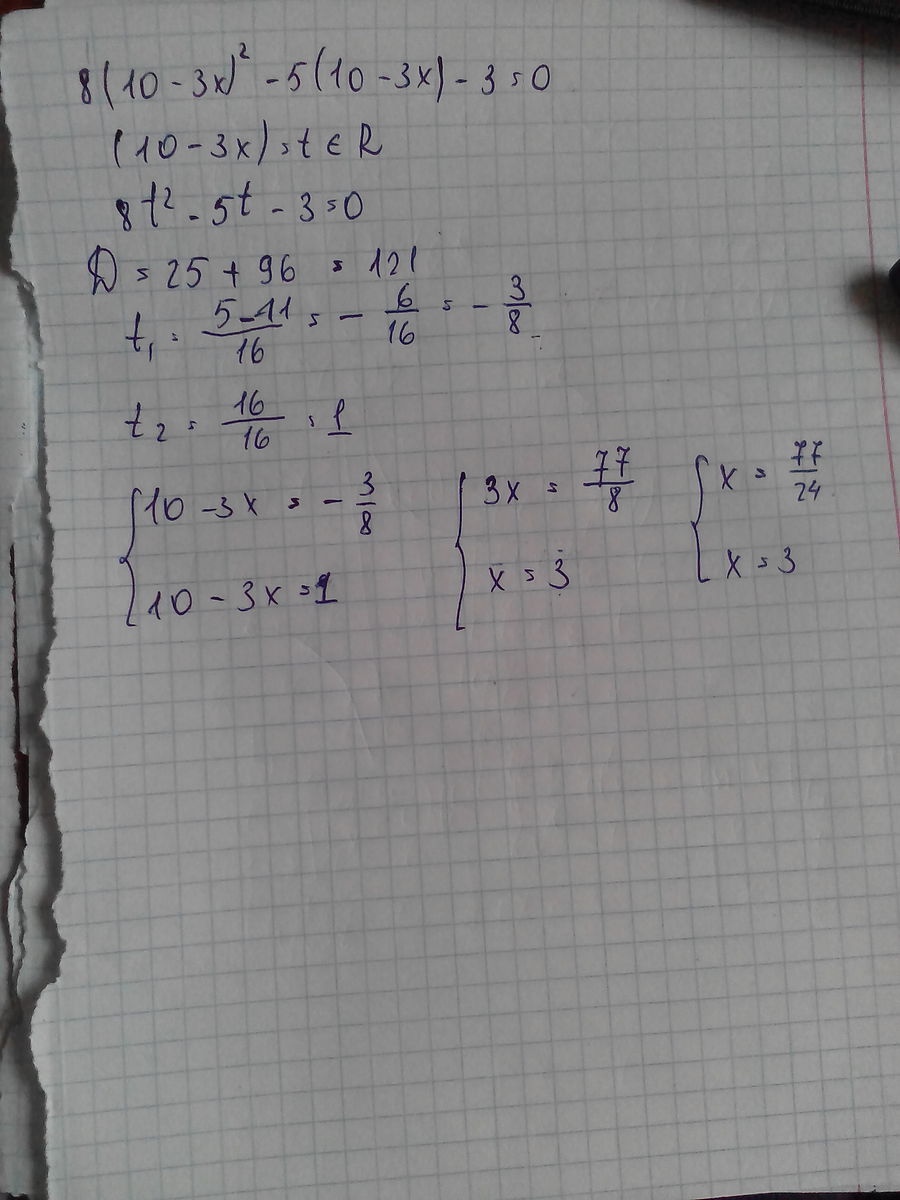 8(10 - 3x)² - 5(10 - 3x) - 3 = 0
(10 - 3x) = t ∈ R
8t² - 5t - 3 = 0
D = 25 + 96 = 121
t₁ = (5-11)/16 = - 6/16 = - 3/8
t₂ = 16/16 = 1
{ 10 - 3x = - 3/8 { 3x = 77/8 { x = 77/24
10 - 3x = 1 x = 3 x = 3